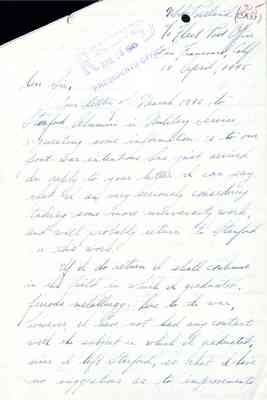 ℅ Fleet Post Office
San Francisco, Calif
10 April, 1945
PRESIDENT'S OFFICE
Dear Sir,
Your letter of March 1945 to
Stanford Alumni in Military service
requesting some information as to our
post war intentions has just arrived.
In reply to your letter I can say
that I am very seriously considering
taking some more university work,
and will probably return to Stanford
for this work.
If I do return I shall continue
in the field in which I graduated,
ferrous metallurgy. Due to the war,
however, I have not had any contact
with the subject in which I graduated,
since I left Stanford, so that I have
no suggestions as to improvements